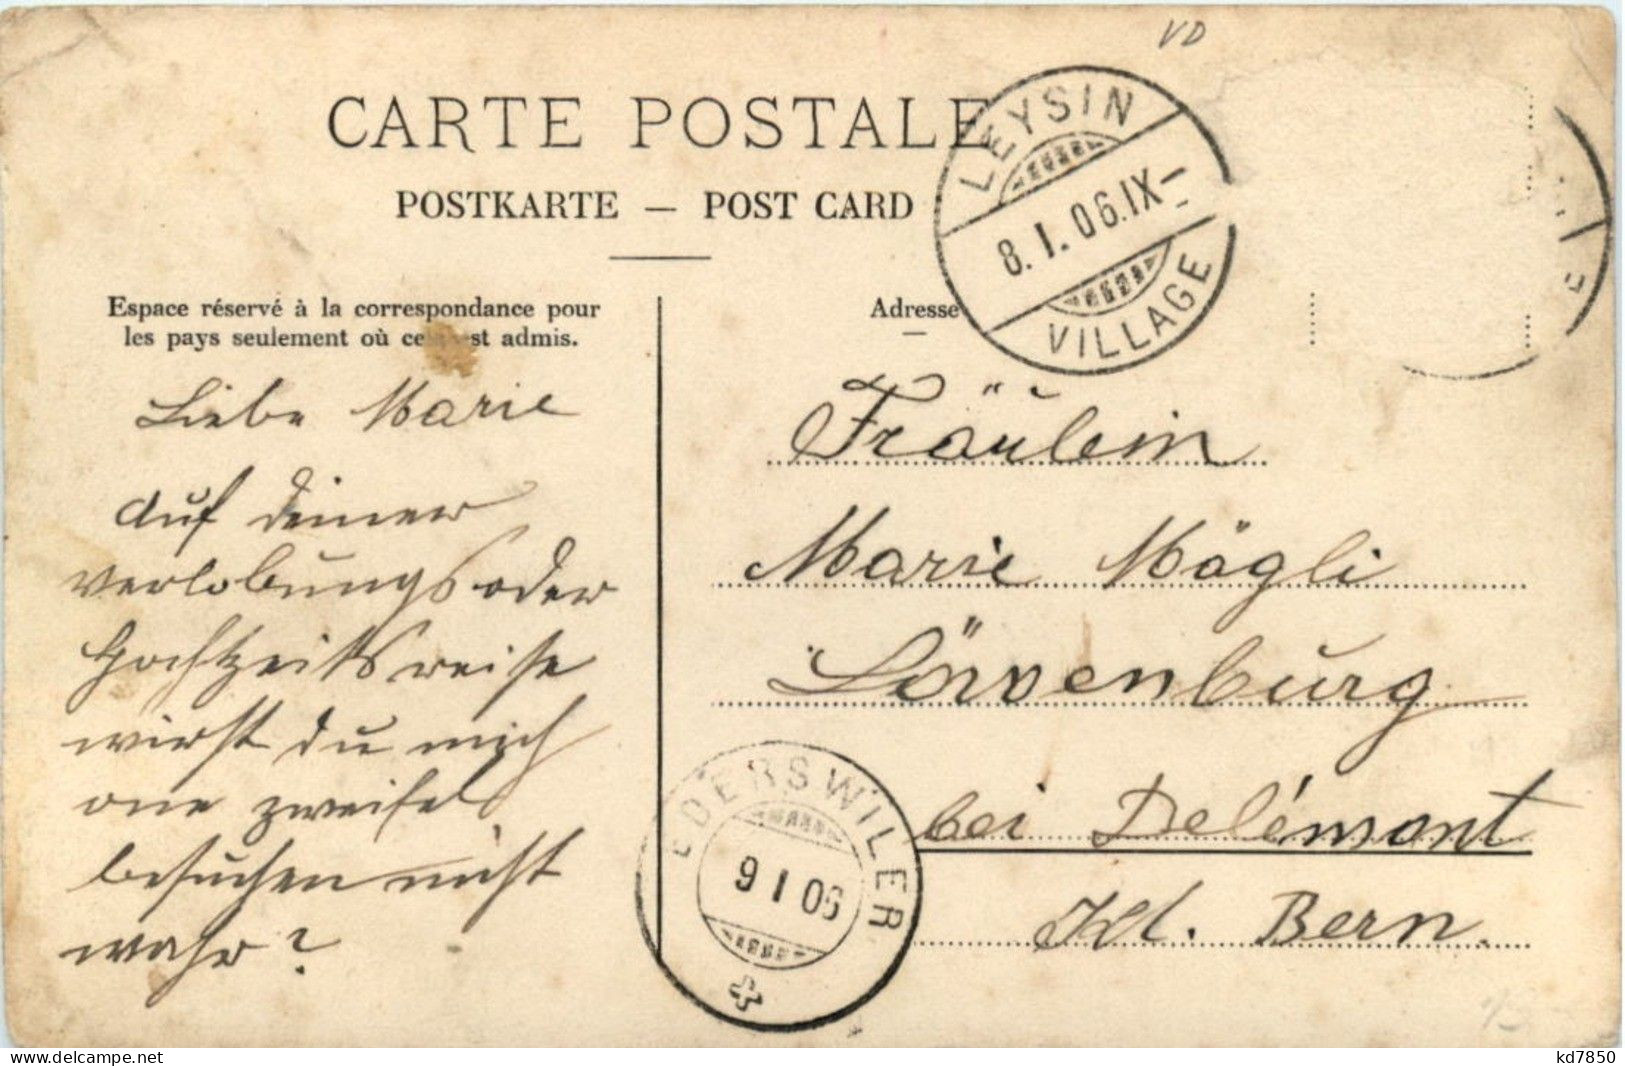 VD
CARTE POSTALE
POSTKARTE — POST CARD
LEYSIN
8.I.06.IX-
VILLAGE
Espace réservé à la correspondance pour
les pays seulement où cela est admis.
Adresse
Liebe Marie
Auf deiner
verlobungs oder
Hochzeitsreise
wirst du mich
one zweifel
besuchen nicht
wahr?
Fräulein
Marie Mägli
Löwenburg
bei Delémont
Kt. Bern.
EDERSWILER
9 I 06
www.delcampe.net
kd7850